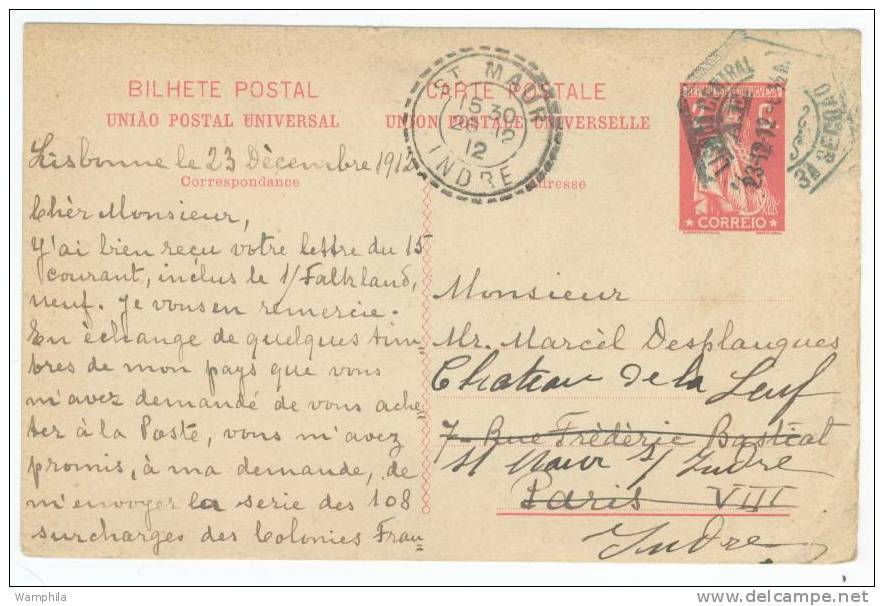 BILHETE POSTAL
UNIÃO POSTAL UNIVERSAL
CARTE POSTALE
UNION POSTALE UNIVERSELLE
Correspondance
Adresse
ST MAUR
15 30
26 12
12
INDRE
23-12-12
CORREIO
Lisbonne le 23 Dècembre 1912
Chèr Monsieur,
Y'ai bien reçu votre lettre du 15
courant, inclus le 1/ Falkland,
neuf. Je vous en remercie.
En èchange de quelques tim=
bres de mon pays que vous
m'avez demandé de vous ache=
ter à la Poste, vous m'avez
promis, à ma demande, de
m'envoyer la serie des 108
surcharges des Colonies Fran=
Monsieur
Mr. Marcèl Desplanques
Chateau de la Leuf
7- Rue Frèdèric Bastiat
St Maur s/ Indre
Paris VIII
Indre
Wamphila
delcampe.net